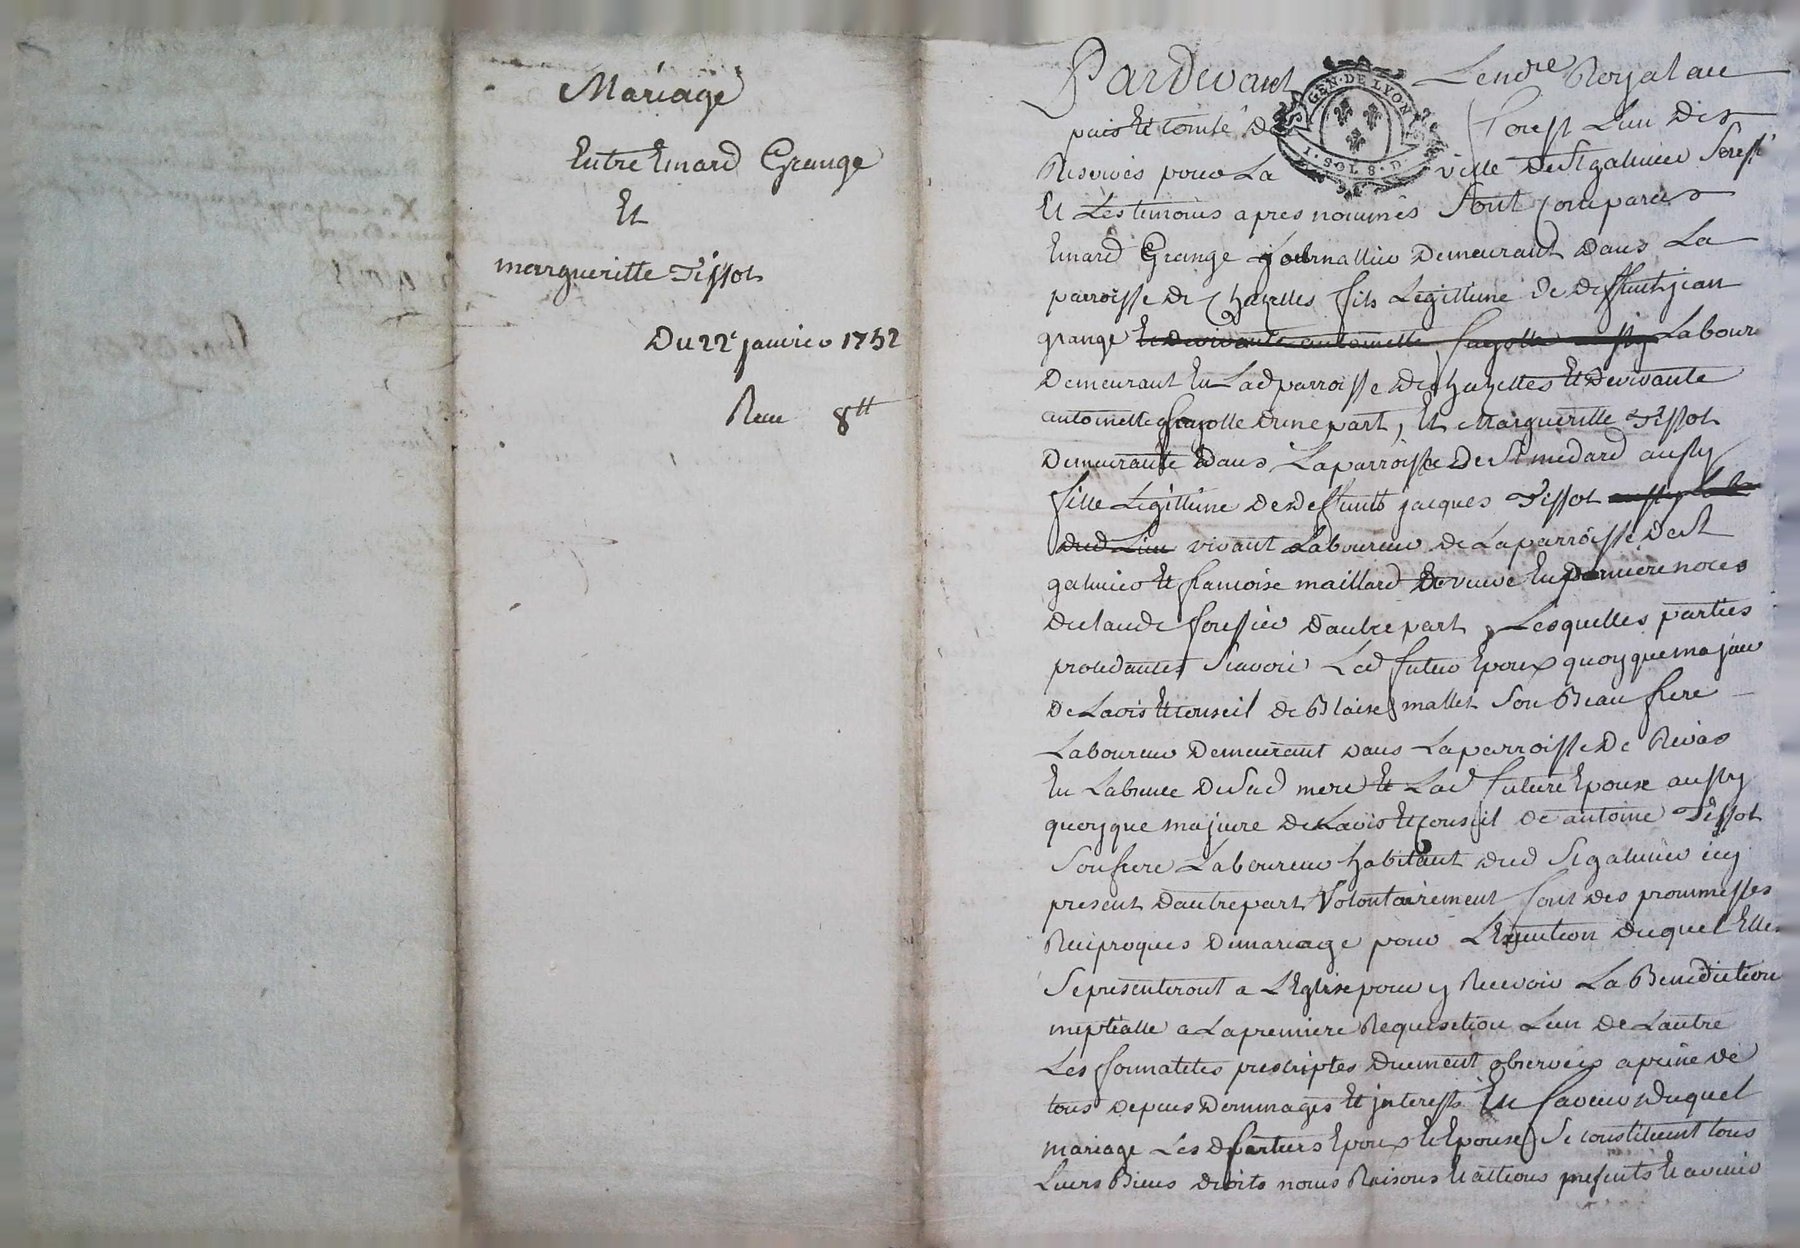 Mariage
Entre Emard Grange
Et
margueritte Tissot
Du 22e janvier 1752
Receu 8tt
Pardevant Le nore Royal au
pais et comté de forest Lun des
Reservés pour La ville de St galmier Sousse
GEN·DE LYON
1·SOL 8·D·
Et Les temoins apres nommés Sont comparus
Emard Grange journallier demeurant dans La
parroisse de Chazelles fils Legittime de deffunt jean
grange et de vivante antoinette fayolle aussy Labour
demeurant En Lad parroisse de chazelles Et de vivante
antoinette fayolle dune part, Et Margueritte Tissot
demeurante dans Laparroisse de St medard aussy
fille Legittime de deffunts jacques Tissot aussy Lab
dud Lieu vivant Laboureur de Laparroisse de St
galmier Et francoise maillard veuve En premiere noces
de claude forissier dautre part, Lesquelles parties
procedantes Scavoir Led futur Epoux quoyque majeur
de Lavis et conseil de Blaise mallet Son Beau frere
Laboureur demeurant dans Laparroisse de Rivas
En Labsence de Sad mere Et Lad future Epouse aussy
quoyque majeure de Lavis et conseil de antoine Tissot
Son frere Laboureur habitant dud St galmier icy
present dautre part Volontairement font des prommesses
Reciproques de mariage pour L'Execution duquel Elles
Se presenteront a L'Eglise pour y Recevoir La Benediction
nuptialle a Lapremiere Requisition Lun de Lautre
Les formalités prescriptes duement observées a peine de
tous depens dommages Et interests En faveur duquel
mariage Les d futurs Epoux et Epouse Se constituent tous
Leurs Biens droits noms Raisons et actions presents et avenir